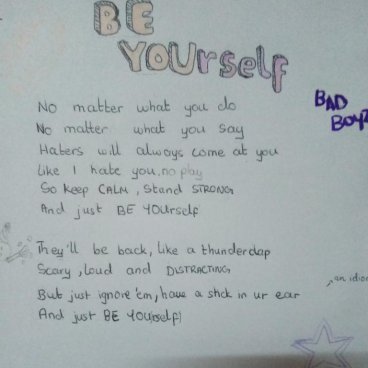 BE
YOUrself
BAD
BoyZ
No matter what you do
No matter what you say
Haters will always come at you
Like I hate you, no play
So keep CALM, Stand STRONG
And just BE YOUrself
They'll be back, like a thunderclap
Scary, loud and DISTRACTING
But just ignore 'em, have a stick in ur ear
, an idiom
And just BE YOUrself!